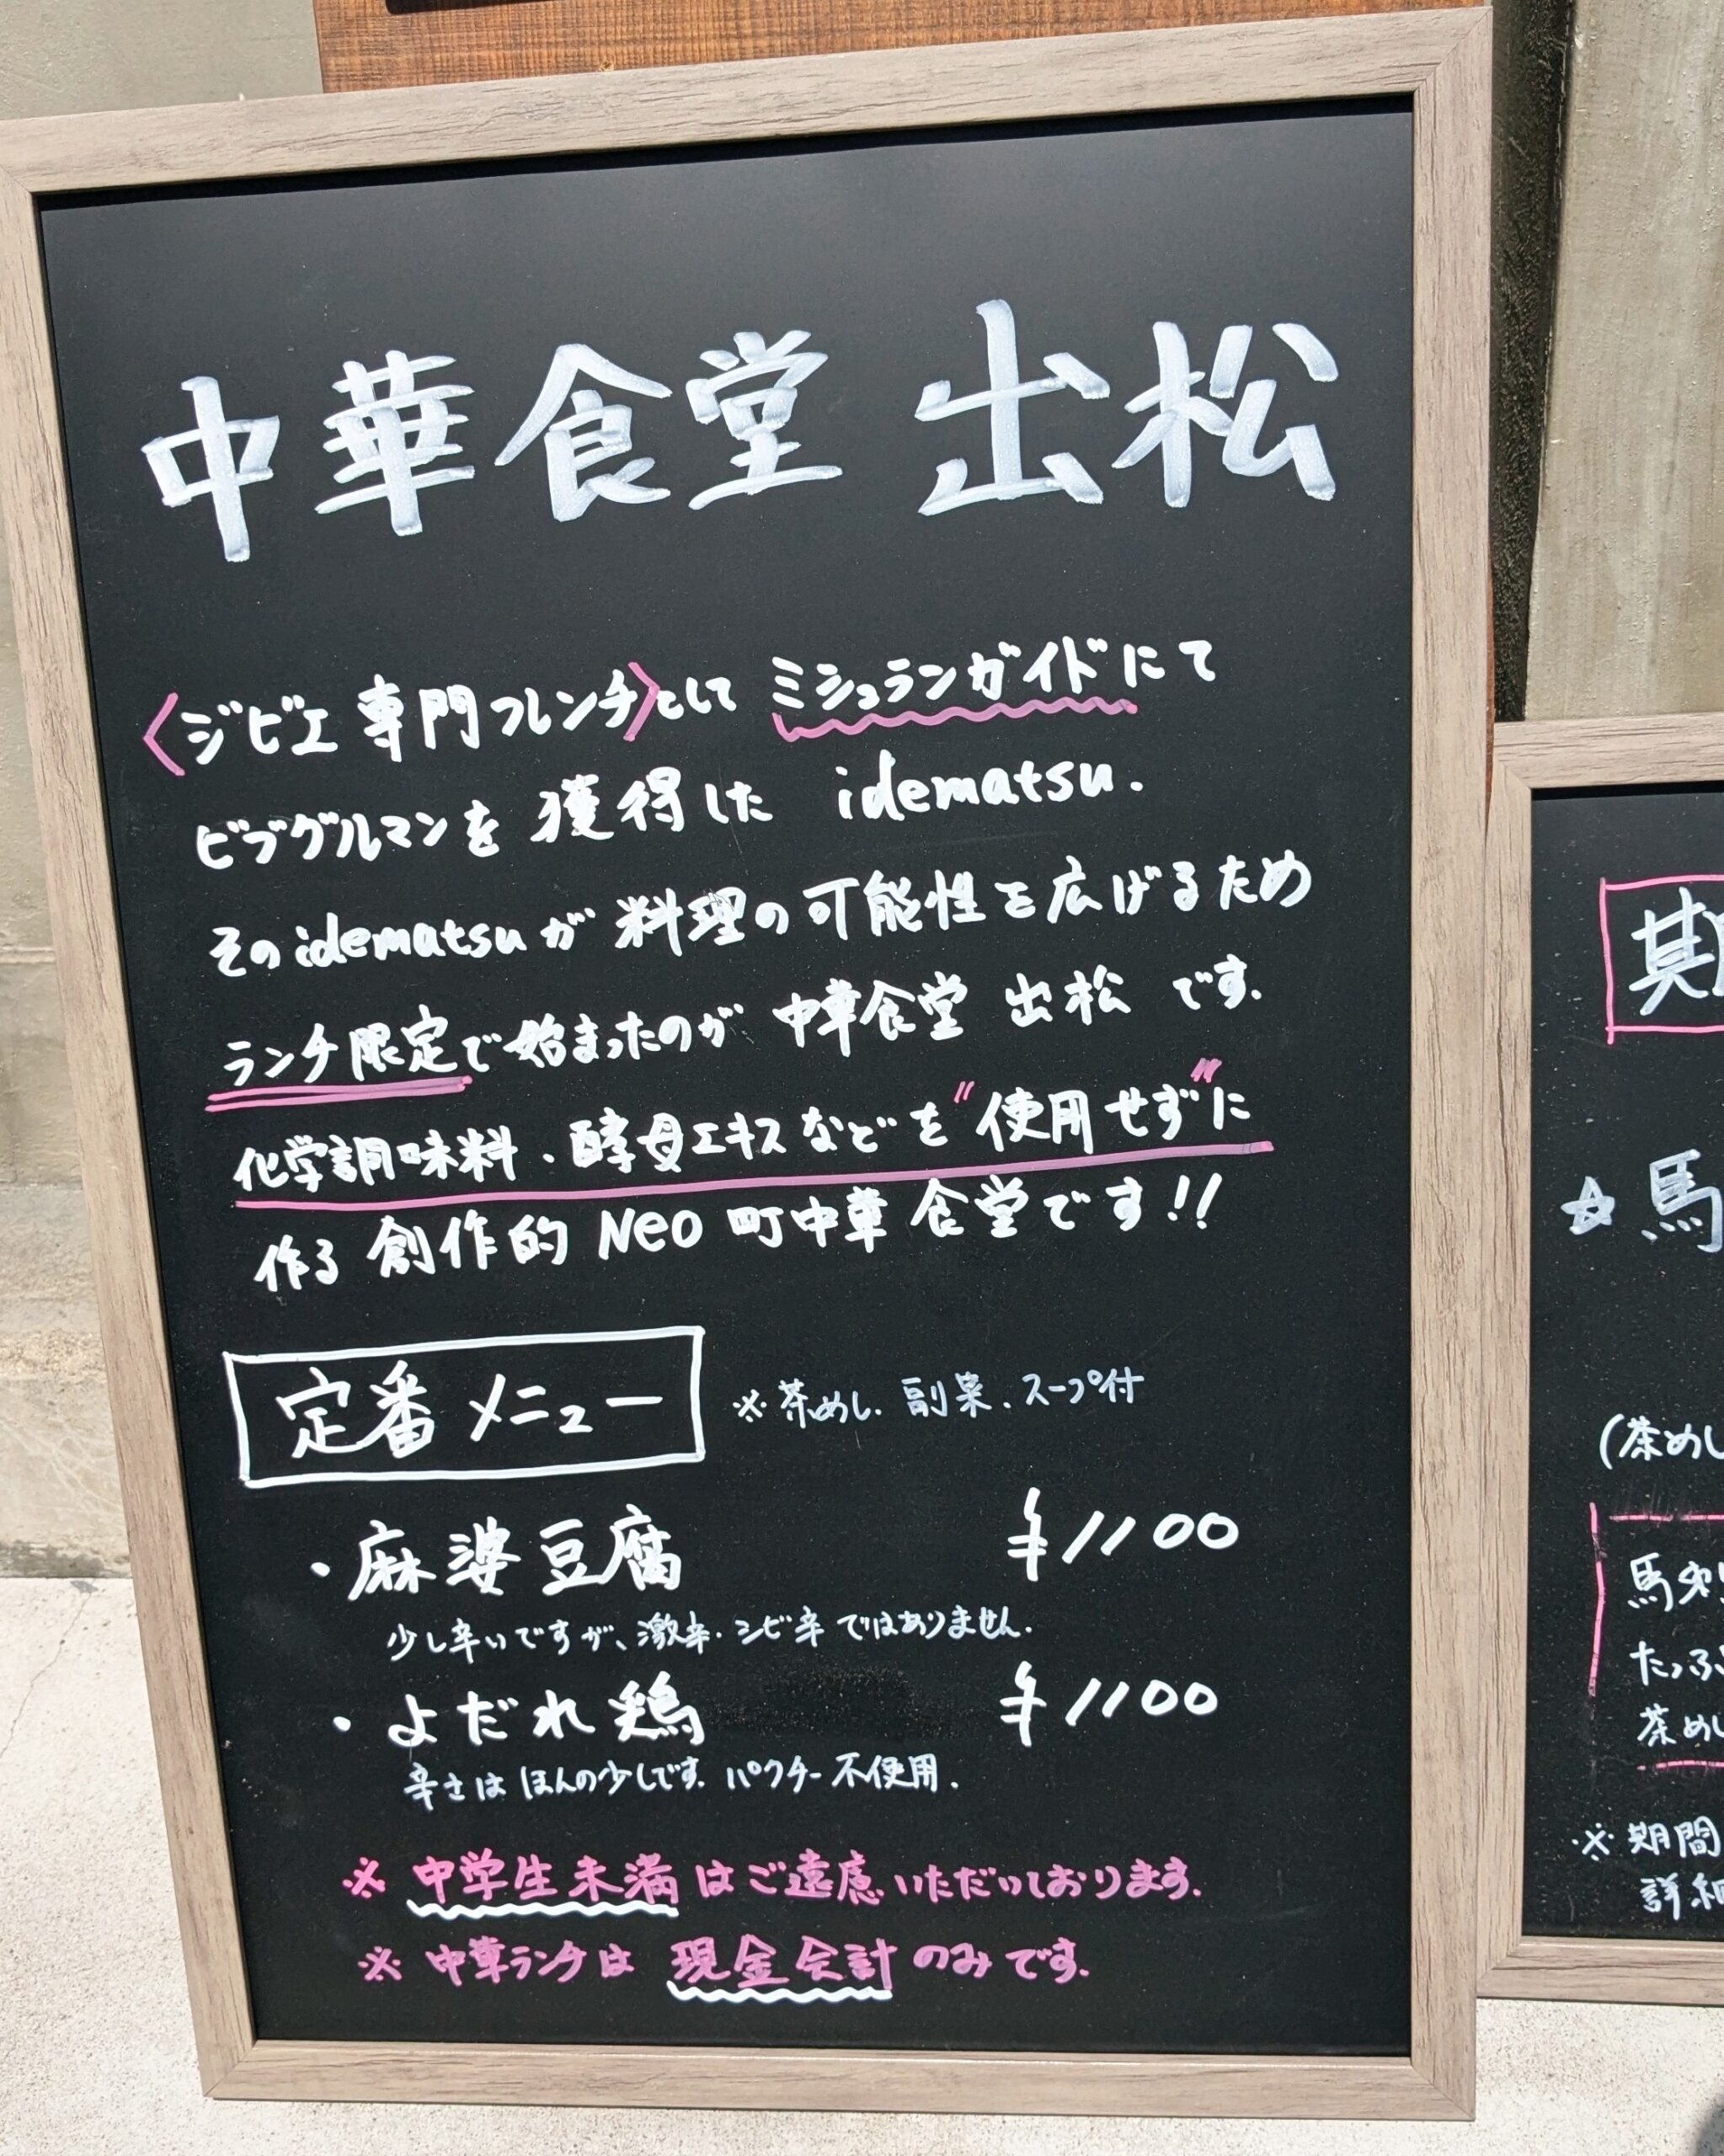 中華食堂 出松
〈ジビエ専門フレンチ〉として ミシュランガイドにて
ビブグルマンを 獲得した idematsu.
そのidematsuが 料理の可能性を広げるため
ランチ限定で始まったのが 中華食堂 出松 です.
化学調味料.酵母エキスなどを"使用せず"に
作る 創作的 Neo 町中華 食堂です!!
定番メニュー ※茶めし. 副菜. スープ付
・麻婆豆腐 ¥1100
少し辛いですが、激辛・シビ辛ではありません.
・よだれ鶏 ¥1100
辛さは ほんの少しです. パクチー不使用.
※ 中学生未満はご遠慮いただいております.
※ 中華ランチは 現金会計のみです.
☆馬
(茶めし
茶めし
※期間